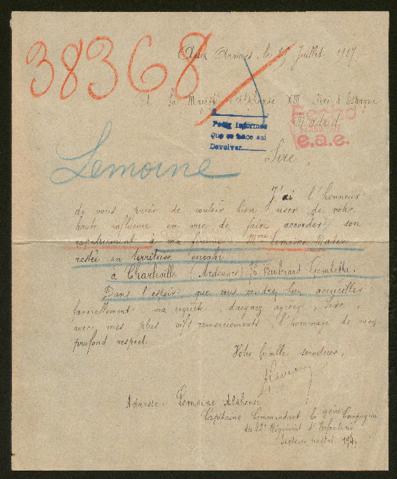 38368
Aux Armées, le Juillet 1917
A Sa Majesté Alphonse XIII Roi d'Espagne
Madrid
e.a.e.
Pedir informes
que se hace así
Devolver
Lemoine
Sire
J'ai l'honneur
de vous prier de vouloir bien user de votre
haute influence en vue de faire accorder son
rapatriement à ma femme Mme Lemoine
restée en territoire envahi
à Charleville (Ardennes) Gambetta
Dans l'espoir que vous voudrez bien accueillir
favorablement ma requête daignez agréer, Sire,
avec mes plus vifs remerciements l'hommage de mon
profond respect.
Votre humble serviteur,
Adresse: Lemoine
Capitaine Commandant la Compagnie
du Régiment d'Infanterie
Secteur postal